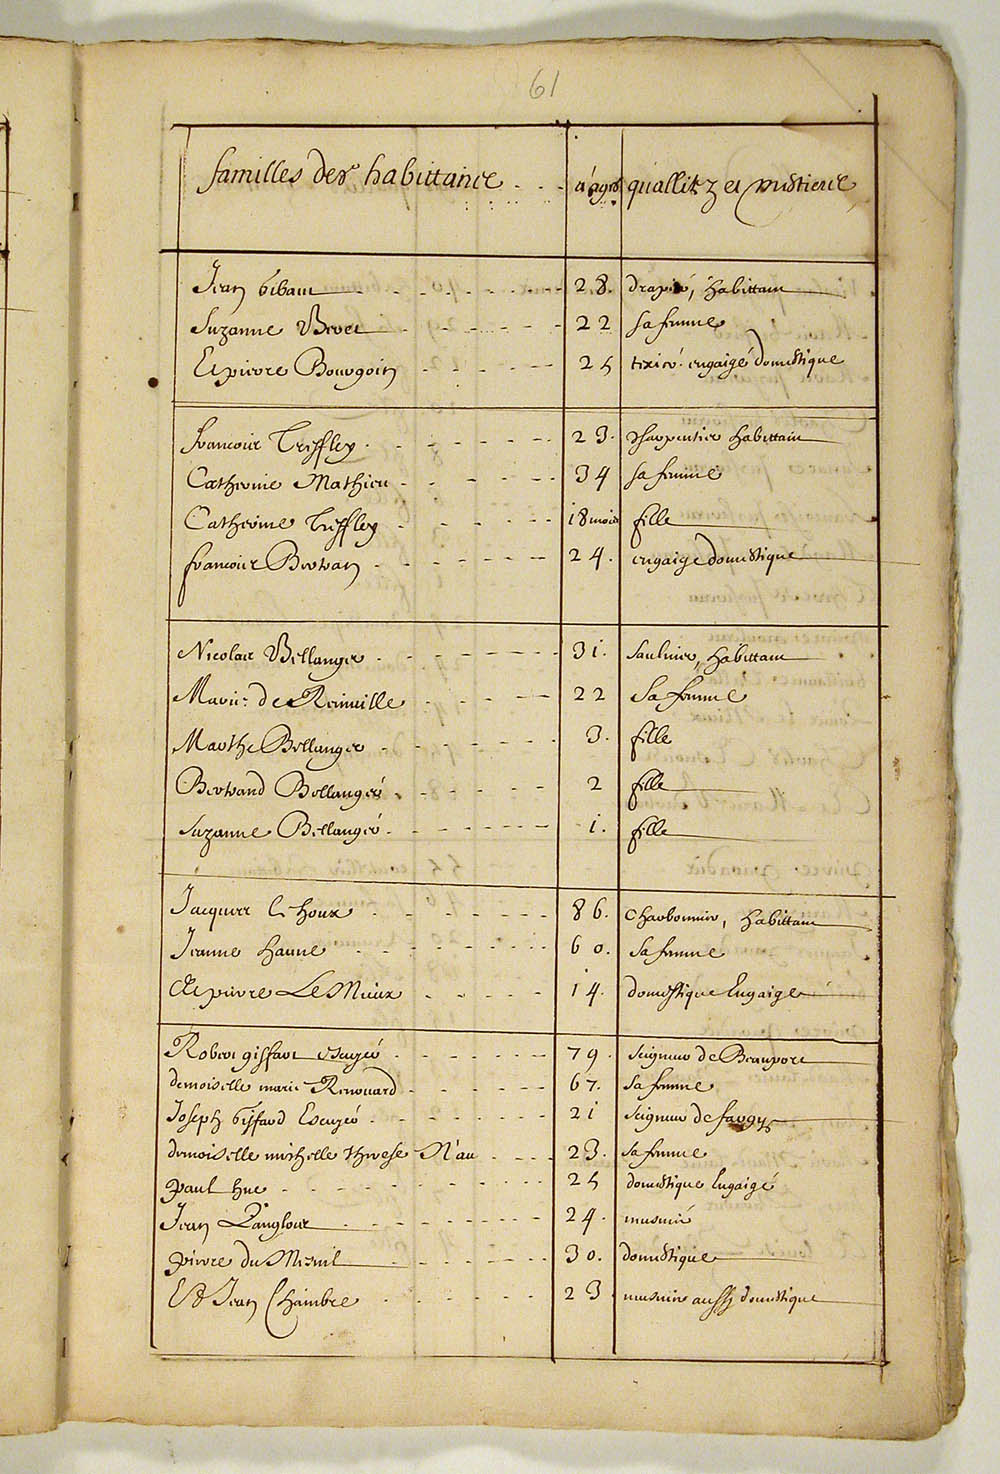 61
familles des habittans aages quallitez et mestiers
Jean Gibaut 28. drapié, habittant
Suzanne Bevet 22 sa femme
Et pierre Bourgoin 25 tixié. engaigé domestique
francois Trefflez 23. charpentier habittant
Catherine Mathieu 34 sa femme
Catherine Trefflez 18 mois fille
francois Bertran 24. engaigé domestique
Nicolas Bellanger 31. saulnier, habittant
Marie de Rainuille 22 sa femme
Marthe Bellanger 3. fille
Bertrand Bellanger 2 fille
Suzanne Bellanger 1. fille
Jacques le houx 86. Charbonnier, habittant
Jeanne haune 60. sa femme
Et pierre Le Mieux 14. domestique Engaigé
Robert giffart escuyer 79. seigneur de Beauport
demoiselle marie Renouard 67. sa femme
Joseph Giffard Escuyer 21 seigneur de fargy
demoiselle michelle therese Nau 23. sa femme
paul hue 25 domestique Engaigé
Jean Langlois 24. musnié
pierre du Mesnil 30. domestique
Et Jean Chambre 23. musnier aussy domestique